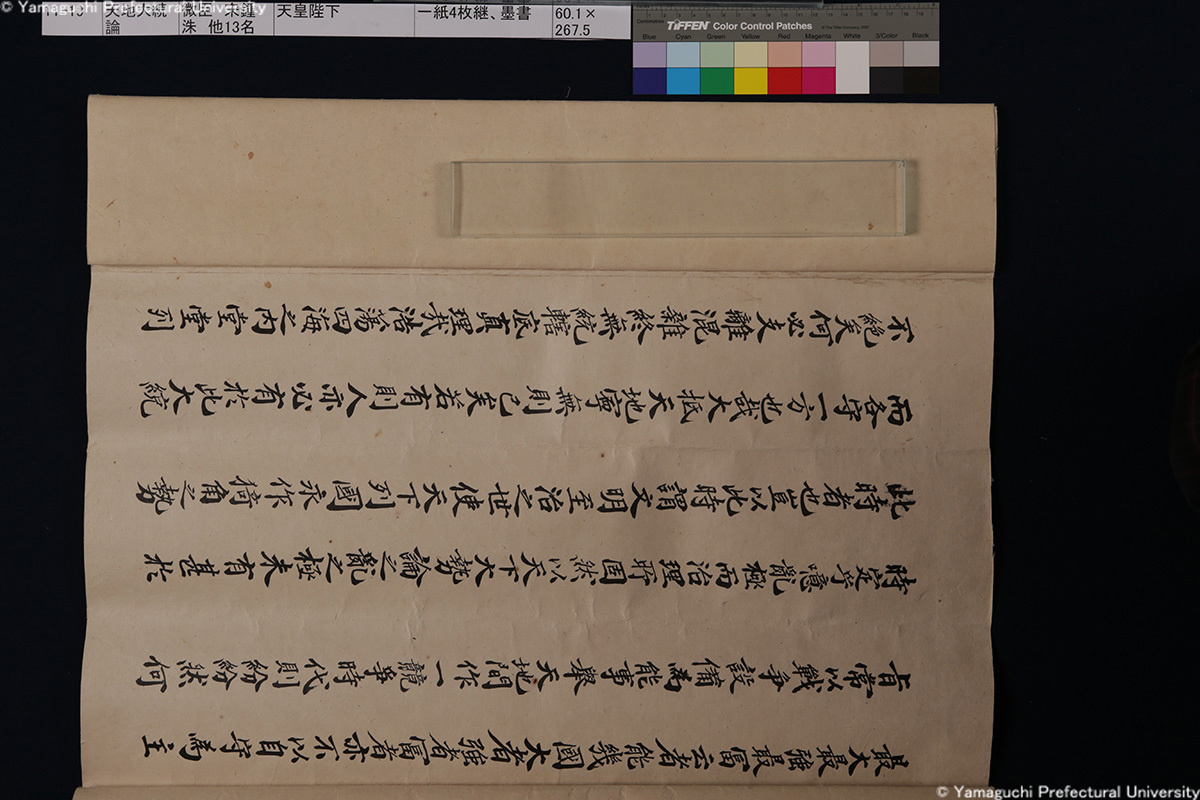 © Yamaguchi Prefectural University
天地大統論
微臣 朱鍾洙 他13名
天皇陛下
一紙4枚継、墨書
60.1×
267.5
TIFFEN Color Control Patches
Blue Cyan Green Yellow Red Magenta White 3/Color Black
最大最強最冨云者能幾國大者強者冨者亦不以自守為主
旨常以戰爭設備為能事舉天地間作一競爭時代則紛紛然何
時定乎噫亂極而治理所固然以天下大勢論之亂之極未有甚於
此時者也豈以此時謂文明至治之世使天下列國永作犄角之勢
而各守一方也哉大抵天地寧無則已矣若有則人亦必有於此大統
不絶矣何必支離混雜終無統轄底真理哉浩蕩四海之内堂堂列
© Yamaguchi Prefectural University